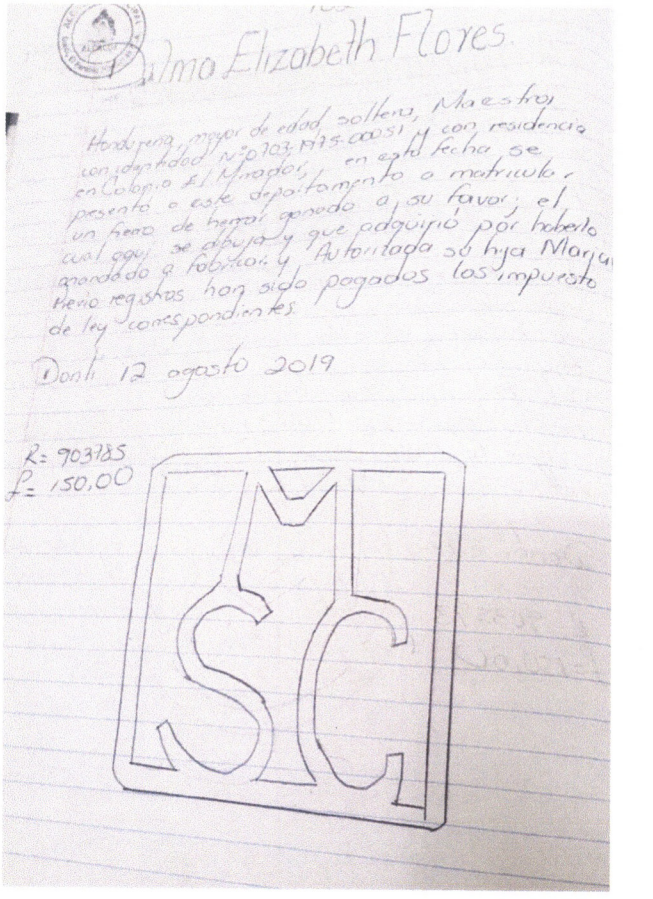 Dalma Elizabeth Flores.
Hondureña, mayor de edad soltera, Maestra,
con identidad Nº0703-1975-00051 y con residencia
en Colonia El Mirador, en esta fecha se
pesentó a este departamento a matricular
un fierro de herrar ganado a su favor; el
cual aqui se dibuja y que adquirió por haberlo
mandado a fabricar. y Autorizada su hija
registros han sido pagados los impuesto
de ley correspondientes.
Danlí 12 agosto 2019
R= 903785
L= 150.00
M
SC